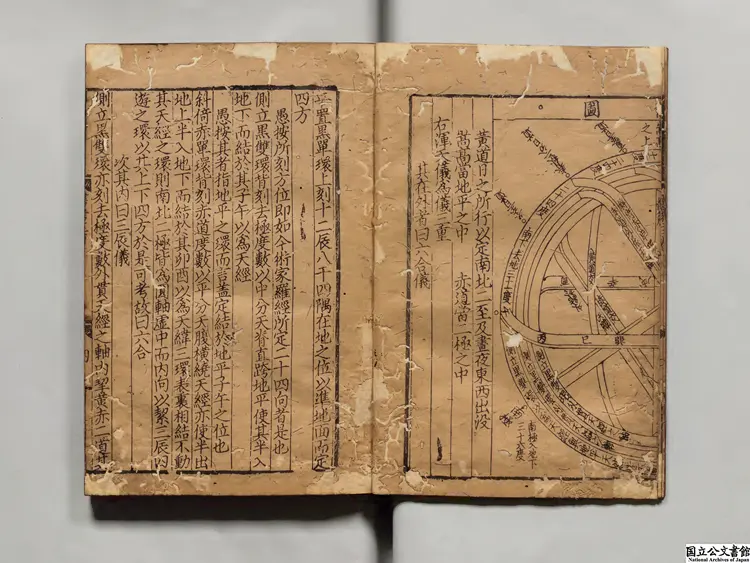 圖
之上
南極入地下
三十六度
黃道日之所行以定南北二至及晝夜東西出没
嵩高當地平之中　赤道當二極之中
右渾天儀為儀三重
其在外者曰六合儀
平置黑單環上刻十二辰八干四隅在地之位以準地面而定
四方
愚按所刻方位即如今術家羅經所定二十四向者是也
側立黑雙環背刻去極度數以中分天脊直跨地平使其半入
地下而結於其子午以為天經
愚按其者指地平之環而言盖定結於地平子午之位也
斜倚赤單環背刻赤道度數以平分天腹橫繞天經亦使半出
地上半入地下而結於其卯酉以為天緯三環表裏相結不動
其天經之環則南北二極皆為圓軸虛中而內向以挈三辰四
遊之環以其上下四方於是可考故曰六合
次其內曰三辰儀
側立黑雙環亦刻去極度數外貫天經之軸內挈黃赤二道
国立公文書館
National Archives of Japan